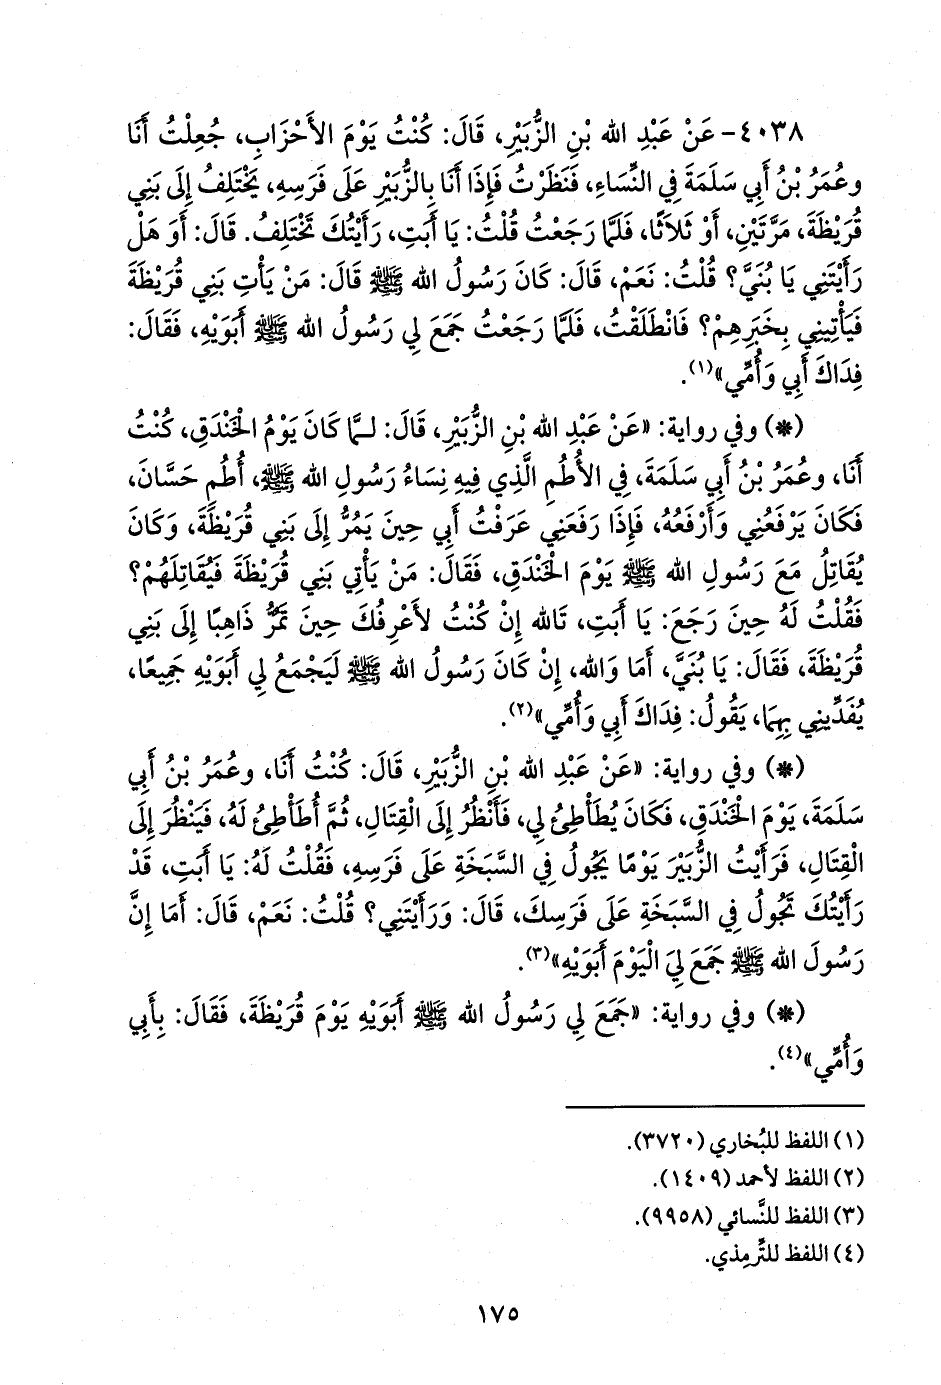 ٤٠٣٨- عَنْ عَبْدِ الله بْنِ الزُّبَيْرِ، قَالَ: كُنْتُ يَوْمَ الأَحْزَابِ، جُعِلْتُ أَنَا
وعُمَرُ بْنُ أَبِي سَلَمَةَ فِي النِّسَاءِ، فَنَظَرْتُ فَإِذَا أَنَا بِالزُّبَيْرِ عَلَى فَرَسِهِ، يَخْتَلِفُ إِلَى بَنِي
قُرَيْظَةَ، مَرَّتَيْنِ، أَوْ ثَلاَثًا، فَلَمَّا رَجَعْتُ قُلْتُ: يَا أَبَتِ، رَأَيْتُكَ تَخْتَلِفُ. قَالَ: أَوَ هَلْ
رَأَيْتَنِي يَا بُنَيَّ؟ قُلْتُ: نَعَمْ، قَالَ: كَانَ رَسُولُ الله ﷺ قَالَ: مَنْ يَأْتِ بَنِي قُرَيْظَةَ
فَيَأْتِينِي بِخَبَرِهِمْ؟ فَانْطَلَقْتُ، فَلَمَّا رَجَعْتُ جَمَعَ لِي رَسُولُ الله ﷺ أَبَوَيْهِ، فَقَالَ:
فِدَاكَ أَبِي وَأُمِّي»(١).
(*) وفي رواية: «عَنْ عَبْدِ الله بْنِ الزُّبَيْرِ، قَالَ: لَـمَّا كَانَ يَوْمُ الْخَنْدَقِ، كُنْتُ
أَنَا، وعُمَرُ بْنُ أَبِي سَلَمَةَ، فِي الأُطُمِ الَّذِي فِيهِ نِسَاءُ رَسُولِ الله ﷺ، أُطُمِ حَسَّانَ،
فَكَانَ يَرْفَعُنِي وَأَرْفَعُهُ، فَإِذَا رَفَعَنِي عَرَفْتُ أَبِي حِينَ يَمُرُّ إِلَى بَنِي قُرَيْظَةَ، وَكَانَ
يُقَاتِلُ مَعَ رَسُولِ الله ﷺ يَوْمَ الْخَنْدَقِ، فَقَالَ: مَنْ يَأْتِي بَنِي قُرَيْظَةَ فَيُقَاتِلَهُمْ؟
فَقُلْتُ لَهُ حِينَ رَجَعَ: يَا أَبَتِ، تَالله إِنْ كُنْتُ لأَعْرِفُكَ حِينَ تَمُرُّ ذَاهِبًا إِلَى بَنِي
قُرَيْظَةَ، فَقَالَ: يَا بُنَيَّ، أَمَا وَالله، إِنْ كَانَ رَسُولُ الله ﷺ لَيَجْمَعُ لِي أَبَوَيْهِ جَمِيعًا،
يُفَدِّينِي بِهِمَا، يَقُولُ: فِدَاكَ أَبِي وَأُمِّي»(٢).
(*) وفي رواية: «عَنْ عَبْدِ الله بْنِ الزُّبَيْرِ، قَالَ: كُنْتُ أَنَا، وعُمَرُ بْنُ أَبِي
سَلَمَةَ، يَوْمَ الْخَنْدَقِ، فَكَانَ يُطَأْطِئُ لِي، فَأَنْظُرُ إِلَى الْقِتَالِ، ثُمَّ أُطَأْطِئُ لَهُ، فَيَنْظُرَ إِلَى
الْقِتَالِ، فَرَأَيْتُ الزُّبَيْرَ يَوْمًا يَجُولُ فِي السَّبَخَةِ عَلَى فَرَسِهِ، فَقُلْتُ لَهُ: يَا أَبَتِ، قَدْ
رَأَيْتُكَ تَجُولُ فِي السَّبَخَةِ عَلَى فَرَسِكَ، قَالَ: وَرَأَيْتَنِي؟ قُلْتُ: نَعَمْ، قَالَ: أَمَا إِنَّ
رَسُولَ الله ﷺ جَمَعَ لِيَ الْيَوْمَ أَبَوَيْهِ»(٣).
(*) وفي رواية: «جَمَعَ لِي رَسُولُ الله ﷺ أَبَوَيْهِ يَوْمَ قُرَيْظَةَ، فَقَالَ: بِأَبِي
وَأُمِّي»(٤).
(١) اللفظ للبُخاري (٣٧٢٠).
(٢) اللفظ لأحمد (١٤٠٩).
(٣) اللفظ للنَّسائي (٩٩٥٨).
(٤) اللفظ للتِّرمِذي.
١٧٥